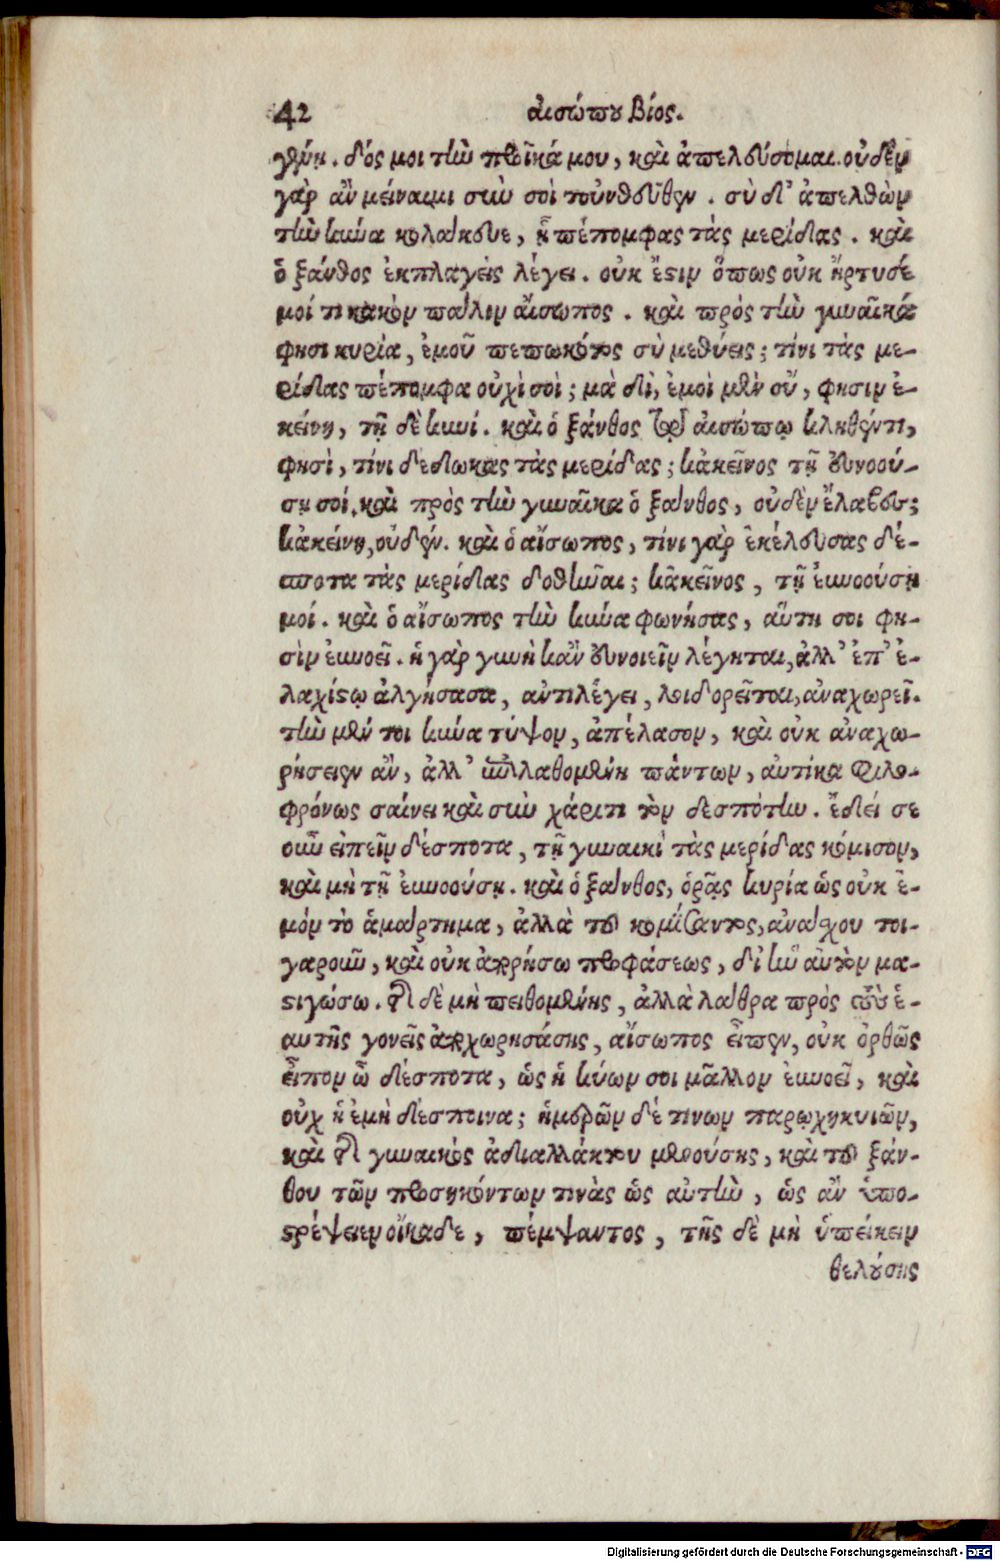 42 αἰσώπου βίος.
γένη. δός μοι τὴν προῖκά μου, καὶ ἀπελεύσομαι. οὐδὲν
γὰρ ἂν μείναιμι σὺν σοὶ τοὐντεῦθεν. σὺ δ' ἀπελθὼν
τὴν κύνα κολάκευε, ᾗ πέπομφας τὰς μερίδας. καὶ
ὁ ξάνθος ἐκπλαγεὶς λέγει. οὐκ ἔστιν ὅπως οὐκ ἤρτυσέ
μοί τι κακὸν πάλιν αἴσωπος. καὶ πρὸς τὴν γυναῖκά
φησι κυρία, ἐμοῦ πεπωκότος σὺ μεθύεις; τίνι τὰς με-
ρίδας πέπομφα οὐχὶ σοί; μὰ δί, ἐμοὶ μὲν οὔ, φησιν ἐ-
κείνη, τῇ δὲ κυνί. καὶ ὁ ξάνθος τῷ αἰσώπῳ κληθέντι,
φησὶ, τίνι δέδωκας τὰς μερίδας; κἀκεῖνος τῇ εὐνοού-
σῃ σοί. καὶ πρὸς τὴν γυναῖκα ὁ ξάνθος, οὐδὲν ἔλαβες;
κἀκείνη, οὐδέν. καὶ ὁ αἴσωπος, τίνι γὰρ ἐκέλευσας δέ-
σποτα τὰς μερίδας δοθῆναι; κἀκεῖνος, τῇ εὐνοούσῃ
μοί. καὶ ὁ αἴσωπος τὴν κύνα φωνήσας, αὕτη σοι φη-
σὶν εὐνοεῖ. ἡ γὰρ γυνὴ κἂν εὐνοιεῖν λέγηται, ἀλλ' ἐπ' ἐ-
λαχίστῳ ἀλγήσασα, ἀντιλέγει, λοιδορεῖται, ἀναχωρεῖ.
τὴν μέν τοι κύνα τύψον, ἀπέλασον, καὶ οὐκ ἀναχω-
ρήσειεν ἂν, ἀλλ' ἐπιλαθομένη πάντων, αὐτίκα φιλο-
φρόνως σαίνει καὶ σὺν χάριτι τὸν δεσπότην. ἔδει σε
οὖν εἰπεῖν δέσποτα, τῇ γυναικὶ τὰς μερίδας κόμισον,
καὶ μὴ τῇ εὐνοούσῃ. καὶ ὁ ξάνθος, ὁρᾷς κυρία ὡς οὐκ ἐ-
μὸν τὸ ἁμάρτημα, ἀλλὰ τοῦ κομίσαντος, ἀνάσχου τοι-
γαροῦν, καὶ οὐκ ἀπορήσω προφάσεως, δι' ἣν αὐτὸν μα-
στιγώσω. τῆς δὲ μὴ πειθομένης, ἀλλὰ λάθρα πρὸς τοὺς ἑ-
αυτῆς γονεῖς ἀποχωρησάσης, αἴσωπος εἶπεν, οὐκ ὀρθῶς
εἶπον ὦ δέσποτα, ὡς ἡ κύων σοι μᾶλλον εὐνοεῖ, καὶ
οὐχ ἡ ἐμὴ δέσποινα; ἡμερῶν δέ τινων παρῳχηκυιῶν,
καὶ τῆς γυναικὸς ἀδιαλλάκτου μενούσης, καὶ τοῦ ξάν-
θου τῶν προσηκόντων τινὰς ὡς αὐτὴν, ὡς ἂν ὑπο-
στρέψειεν οἴκαδε, πέμψαντος, τῆς δὲ μὴ ὑπείκειν
θελούσης
Digitalisierung gefördert durch die Deutsche Forschungsgemeinschaft - DFG